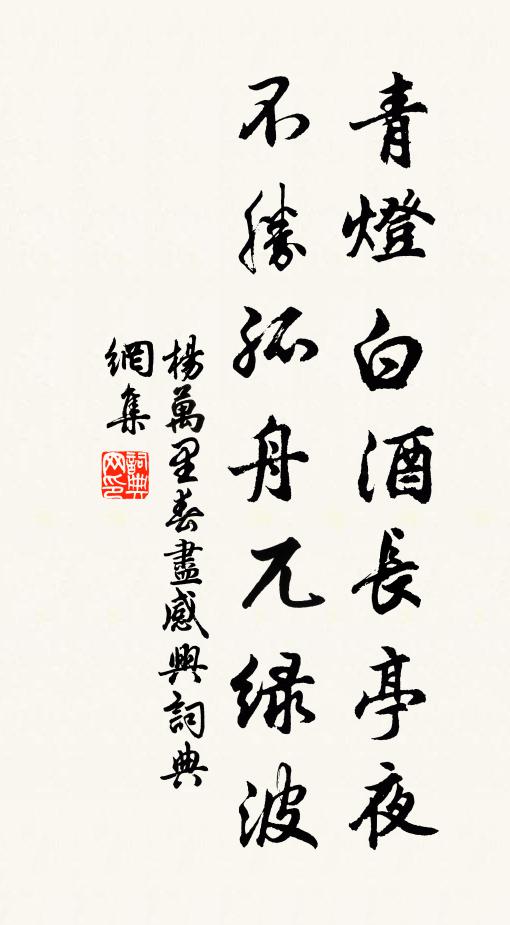 青燈白酒長亭夜
不勝孤舟兀綠波
楊萬里春盡感興詞典
網集
詞典
网印